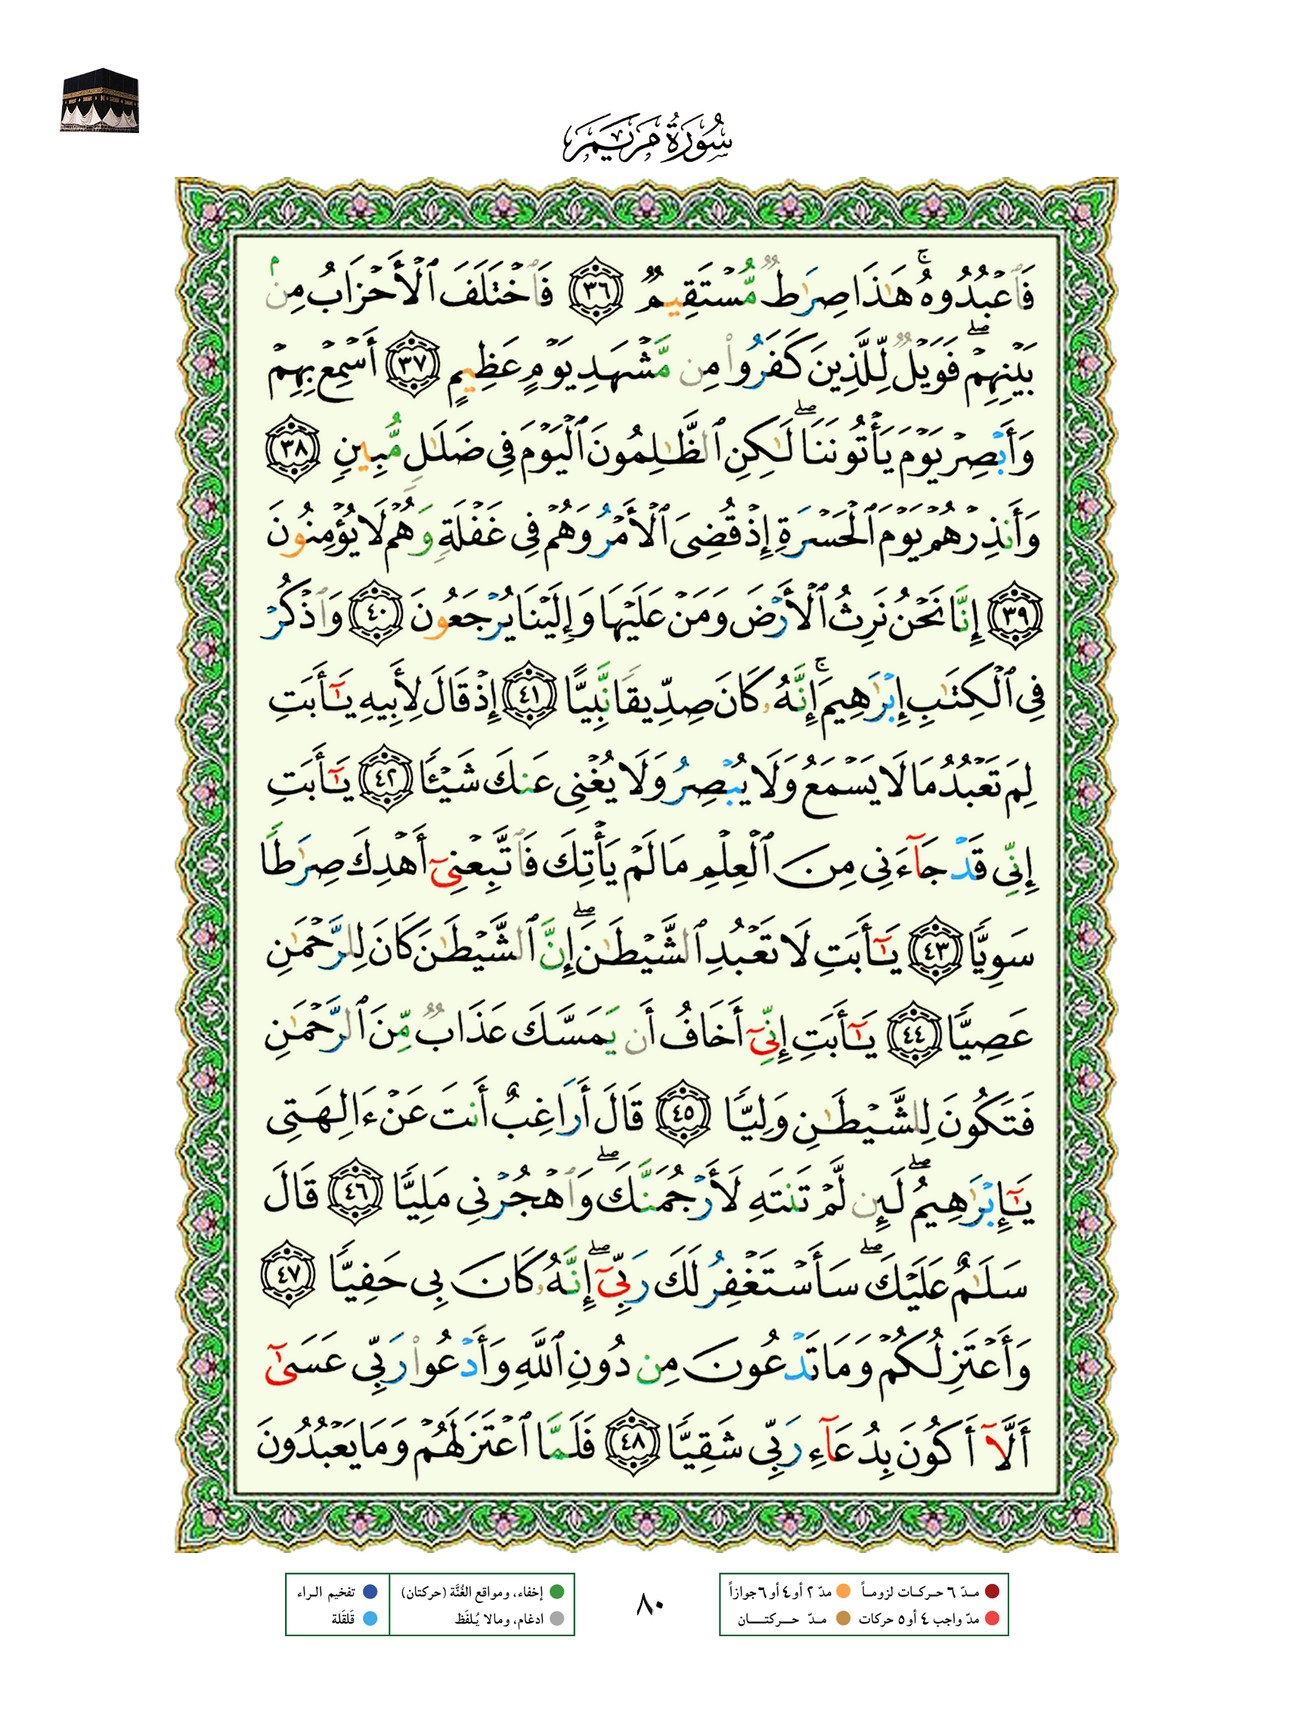 سُورَةُ مَرۡيَمَ
فَٱعۡبُدُوهُۚ هَٰذَا صِرَٰطٞ مُّسۡتَقِيمٞ ٣٦ فَٱخۡتَلَفَ ٱلۡأَحۡزَابُ مِنۢ
بَيۡنِهِمۡۖ فَوَيۡلٞ لِّلَّذِينَ كَفَرُواْ مِن مَّشۡهَدِ يَوۡمٍ عَظِيمٍ ٣٧ أَسۡمِعۡ بِهِمۡ
وَأَبۡصِرۡ يَوۡمَ يَأۡتُونَنَاۖ لَٰكِنِ ٱلظَّٰلِمُونَ ٱلۡيَوۡمَ فِي ضَلَٰلٖ مُّبِينٖ ٣٨
وَأَنذِرۡهُمۡ يَوۡمَ ٱلۡحَسۡرَةِ إِذۡ قُضِيَ ٱلۡأَمۡرُ وَهُمۡ فِي غَفۡلَةٖ وَهُمۡ لَا يُؤۡمِنُونَ
٣٩ إِنَّا نَحۡنُ نَرِثُ ٱلۡأَرۡضَ وَمَنۡ عَلَيۡهَا وَإِلَيۡنَا يُرۡجَعُونَ ٤٠ وَٱذۡكُرۡ
فِي ٱلۡكِتَٰبِ إِبۡرَٰهِيمَۚ إِنَّهُۥ كَانَ صِدِّيقٗا نَّبِيًّا ٤١ إِذۡ قَالَ لِأَبِيهِ يَٰٓأَبَتِ
لِمَ تَعۡبُدُ مَا لَا يَسۡمَعُ وَلَا يُبۡصِرُ وَلَا يُغۡنِي عَنكَ شَيۡـٔٗا ٤٢ يَٰٓأَبَتِ
إِنِّي قَدۡ جَآءَنِي مِنَ ٱلۡعِلۡمِ مَا لَمۡ يَأۡتِكَ فَٱتَّبِعۡنِيٓ أَهۡدِكَ صِرَٰطٗا
سَوِيّٗا ٤٣ يَٰٓأَبَتِ لَا تَعۡبُدِ ٱلشَّيۡطَٰنَۖ إِنَّ ٱلشَّيۡطَٰنَ كَانَ لِلرَّحۡمَٰنِ
عَصِيّٗا ٤٤ يَٰٓأَبَتِ إِنِّيٓ أَخَافُ أَن يَمَسَّكَ عَذَابٞ مِّنَ ٱلرَّحۡمَٰنِ
فَتَكُونَ لِلشَّيۡطَٰنِ وَلِيّٗا ٤٥ قَالَ أَرَاغِبٌ أَنتَ عَنۡ ءَالِهَتِي
يَٰٓإِبۡرَٰهِيمُۖ لَئِن لَّمۡ تَنتَهِ لَأَرۡجُمَنَّكَۖ وَٱهۡجُرۡنِي مَلِيّٗا ٤٦ قَالَ
سَلَٰمٌ عَلَيۡكَۖ سَأَسۡتَغۡفِرُ لَكَ رَبِّيٓۖ إِنَّهُۥ كَانَ بِي حَفِيّٗا ٤٧
وَأَعۡتَزِلُكُمۡ وَمَا تَدۡعُونَ مِن دُونِ ٱللَّهِ وَأَدۡعُواْ رَبِّي عَسَىٰٓ
أَلَّآ أَكُونَ بِدُعَآءِ رَبِّي شَقِيّٗا ٤٨ فَلَمَّا ٱعۡتَزَلَهُمۡ وَمَا يَعۡبُدُونَ
مـدّ ٦ حركـات لزومـاً مدّ ٢ أو ٤ أو ٦ جوازاً
مدّ واجب ٤ أو ٥ حركات مـدّ حـــركتـــان
٨٠
إخفاء، ومواقع الغُنَّة (حركتان) تفخيم الـراء
ادغام، ومالا يُـلفَظ قلقلة